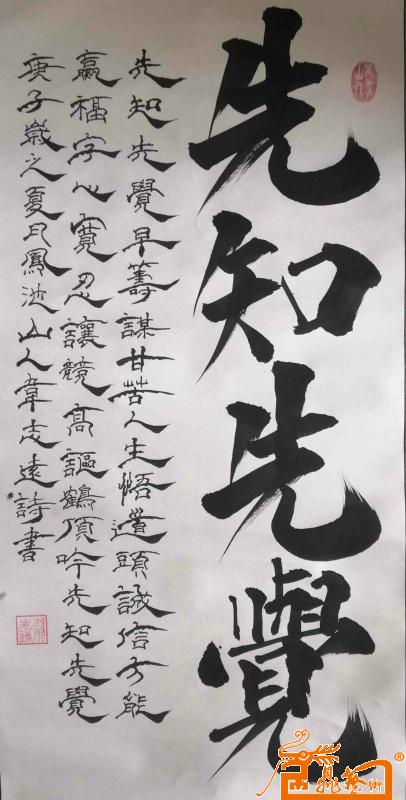 先知先覺
先知先覺早籌謀甘苦人生悟道頭誠信方能
贏福字心寬忍讓競高謳鶴頂吟先知先覺
庚子歲之夏月鳳池山人韋志遠詩書